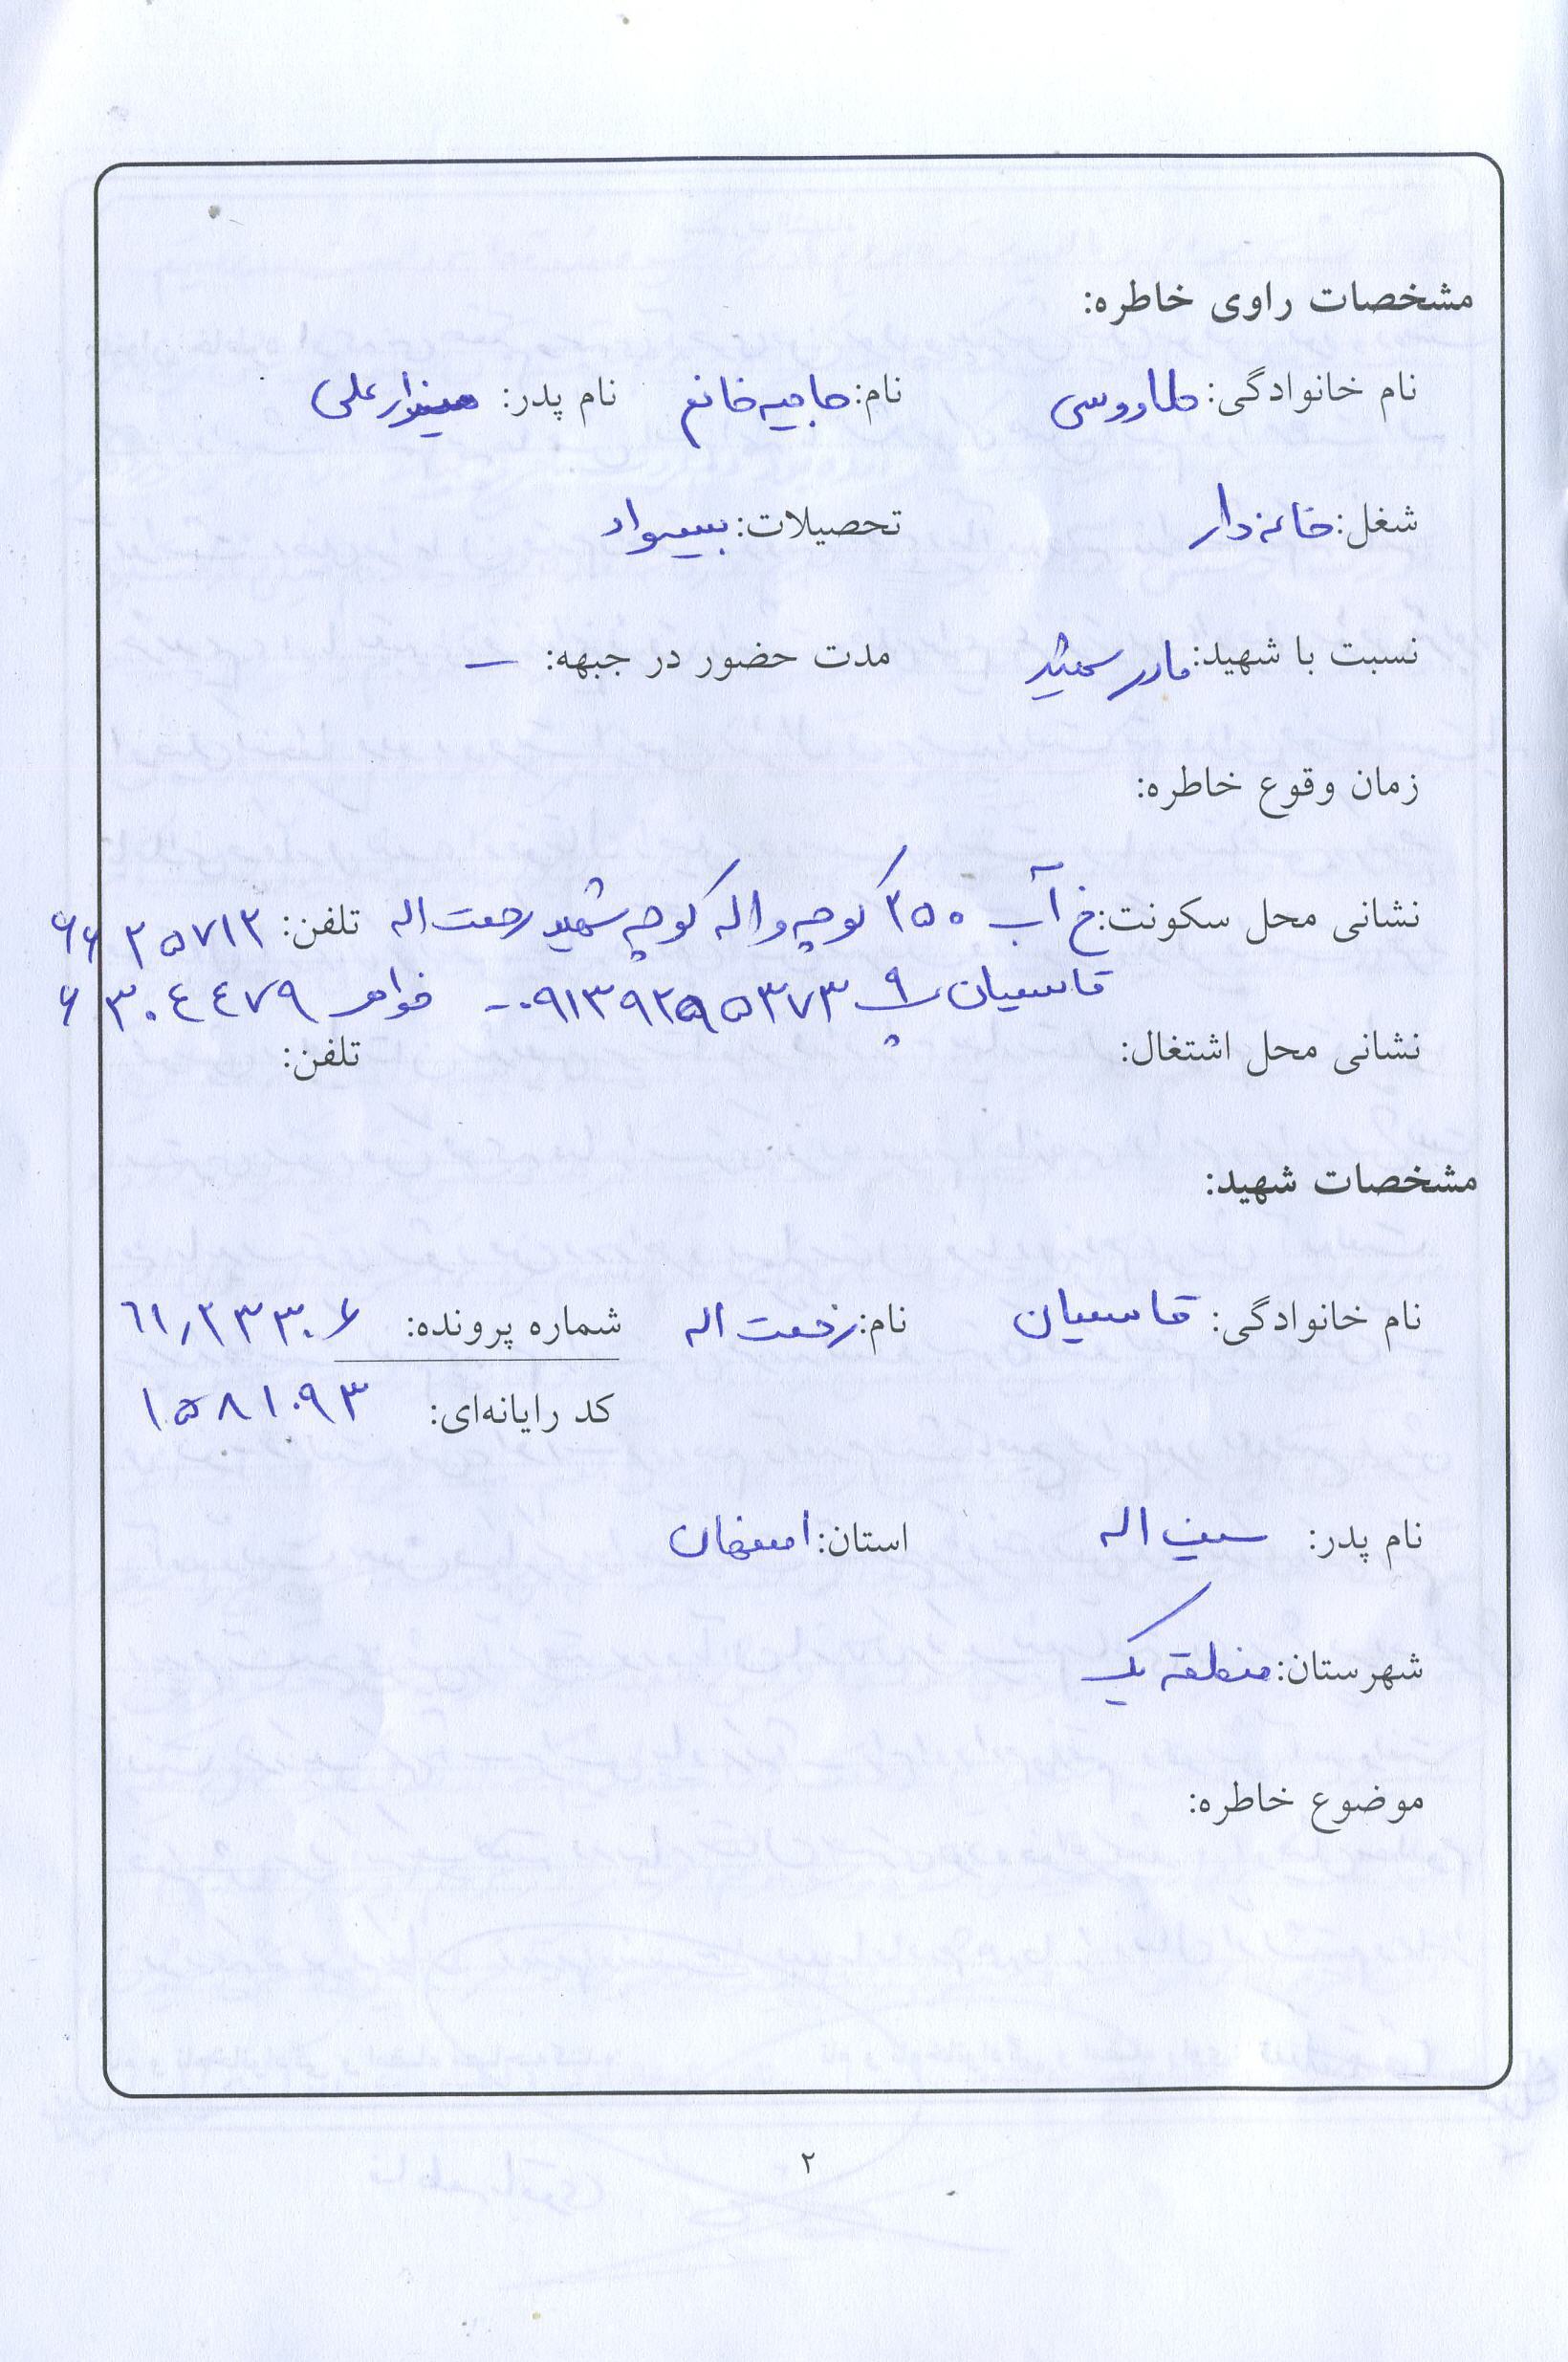 مشخصات راوی خاطره:
نام خانوادگی: طاووسی نام: حاجیه خانم نام پدر: علی
شغل: خانه دار تحصیلات: بیسواد
نسبت با شهید: مادر شهید مدت حضور در جبهه: –
زمان وقوع خاطره:
نشانی محل سکونت: خ آب ۲۵۰ کوچه واله کوچه شهید رحمت اله تلفن: ۶۶۲۵۷۱۲
قاسمیان پ ۹ خواهر ۶۳۰۴۴۷۹
نشانی محل اشتغال: تلفن:
مشخصات شهید:
نام خانوادگی: قاسمیان نام: رحمت اله شماره پرونده:
کد رایانه‌ای: ۱۵۸۱۰۹۳
نام پدر: سیف اله استان: اصفهان
شهرستان: منطقه یک
موضوع خاطره:
۲